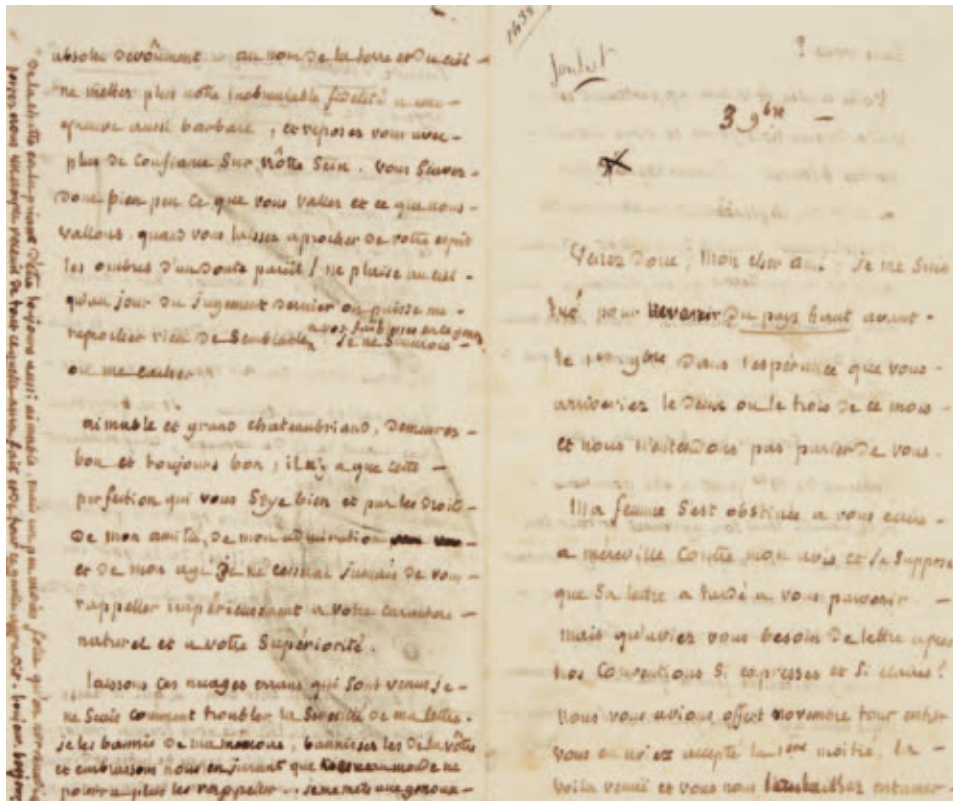 absolu devoûment au nom de la terre et du ciel
ne mettez plus notre inebranlable fidelité a une
epreuve aussi barbare, et reposez vous avec
plus de confiance sur nôtre sein. vous sçavez
donc bien peu ce que vous valez et ce que nous
valons, quand vous laissez aprocher de votre esprit
les ombres d'un doute pareil! ne plaise au ciel
qu'au jour du jugement dernier on puisse me
reprocher rien de semblable, je ne sçaurois
où me cacher
aimable et grand chateaubriand, demeurez
bon et toujours bon; il n'y a que cette
perfection qui vous seye bien et par les droits
de mon amitié, de mon admiration
et de mon age je ne cesserai jamais de vous
rappeller impérieusement a votre caractere
naturel et a votre supériorité.
laissons ces nuages errans qui sont venus je
ne sais comment troubler la serenité de ma lettre.
je les bannis de ma mémoire, bannissez les de la vôtre
et embrassons nous en jurant que ne
pourra plus les rappeller. je me mets aux genoux
de la chatte en la priant d'être toujours aussi aimable, mais un peu moins folle
1438
Joubert
?
3 9bre
Venez donc, mon cher ami. je me suis
tué pour revenir du pays haut avant
le 1er 9bre dans l'espérance que vous
arriveriez le deux ou le trois de ce mois
et nous n'entendons pas parler de vous.
Ma femme s'est obstinée a vous ecrire
a méréville contre mon avis et je suppose
que sa lettre a tardé a vous parvenir
mais qu'aviez vous besoin de lettre apres
nos conventions si expresses et si claires?
nous vous avions offert novembre tout entier
vous en aviez accepté la 1ere moitié. la
voila venue et vous nous l'entamer